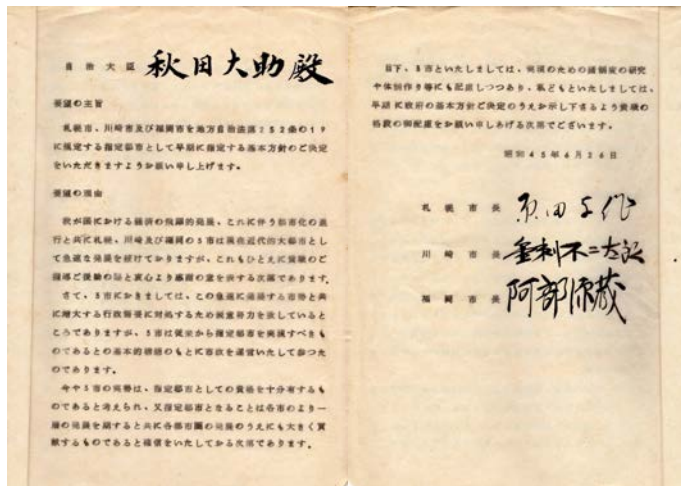 自治大臣 秋田大助殿
要望の主旨
札幌市、川崎市及び福岡市を地方自治法第252条の19
に規定する指定都市として早期に指定する基本方針のご決定
をいただきますようお願い申し上げます。
要望の理由
我が国における経済の飛躍的発展、これに伴う都市化の進
行と共に札幌、川崎及び福岡の3市は現在近代的大都市とし
て急速な発展を続けておりますが、これもひとえに貴職のご
指導ご後援の賜と衷心より感謝の意を表する次第であります。
さて、3市におきましては、この急速に発展する市勢と共
に増大する行政需要に対処するため鋭意努力を致していると
ころでありますが、3市は従来から指定都市を実現すべきも
のであるとの基本的構想のもとに市政を運営いたして参つた
のであります。
今や3市の実勢は、指定都市としての資格を十分有するも
のであると考えられ、又指定都市となることは各市のより一
層の発展を期すると共に各都市圏の発展のうえにも大きく貢
献するものであると確信をいたしておる次第であります。
目下、3市といたしましては、実現のための諸制度の研究
や体制作り等にも配慮しつつあり、私どもといたしましては、
早期に政府の基本方針ご決定のうえお示し下さるよう貴職の
格段の御配慮をお願い申しあげる次第でございます。
昭和45年6月26日
札幌市長 原田与作
川崎市長 金刺不二太郎
福岡市長 阿部源蔵